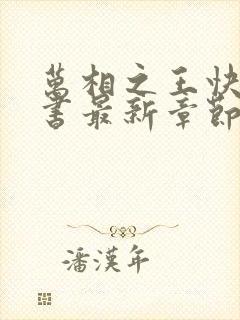 萬相之王快
書最新章節
潘漢年